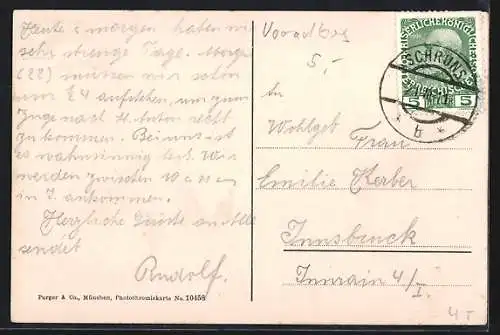 Heute u morgen haben wir
sehr strenge Tage. Morgen
(22) müssen wir schon
um ¾4 aufstehen, um zum
Zuge nach St. Anton recht
zu kommen. Bei uns ist
es wahnsinnig heiß. Wir
werden zwischen 10 u 11
in I. ankommen.
Herzliche Grüße an Alle
sendet
Rudolf.
Purger & Co., München, Photochromiekarte No. 10458
Vorarlbg
5,-
SCHRUNS
5 5
* b *
An
Wohlgeb Frau
Emilie Kerber
Innsbruck
Innrain 4/I.
4 T